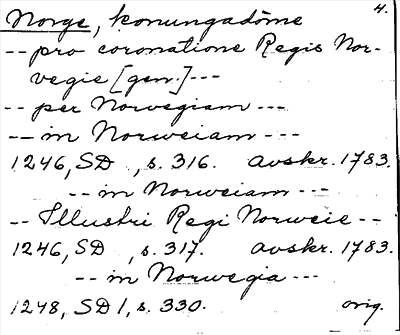 4.
Norge, konungadöme
-- pro coronatione Regis Nor-
vegie [gen.] ---
-- per Norvegiam ---
-- in Norweiam ---
1246, SD , s. 316. avskr. 1783.
-- in Norweiam ---
-- Illustri Regi Norweie --
1246, SD , s. 317. avskr. 1783.
-- in Norwegia ---
1248, SD 1, s. 330. orig.